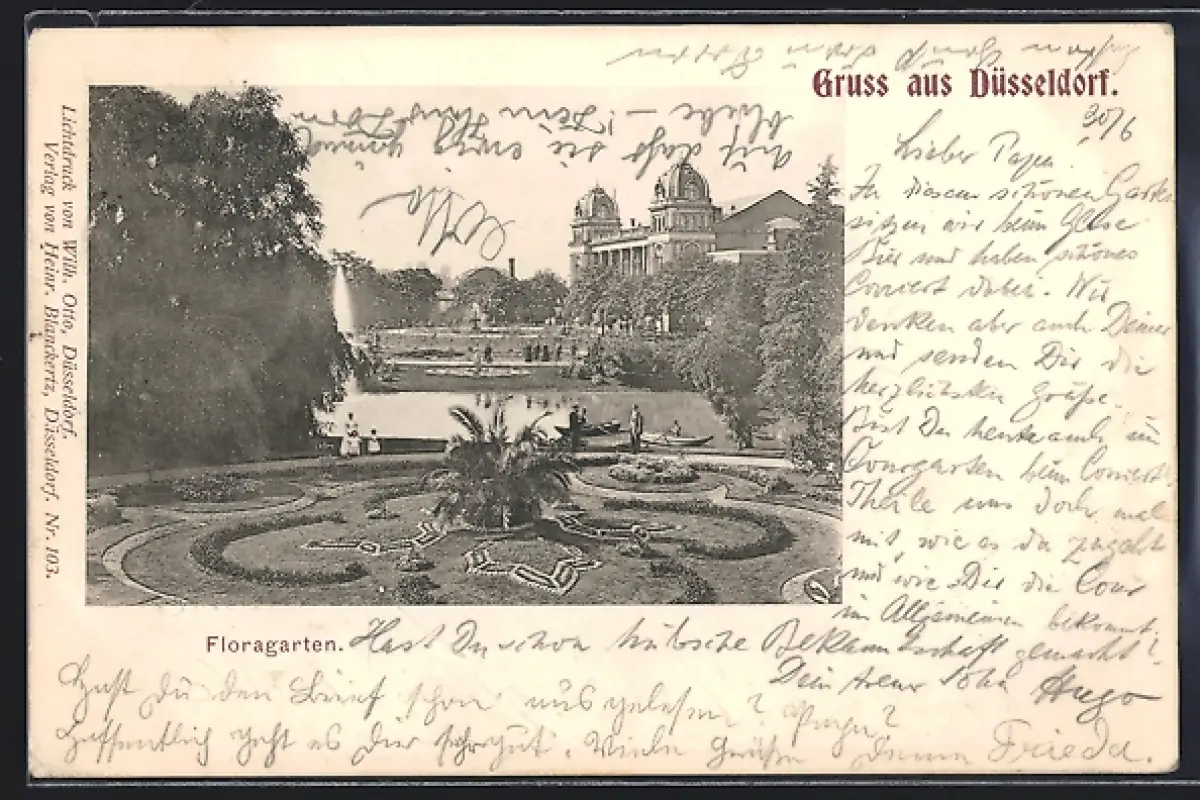 Gruss aus Düsseldorf.
30/6
Lieber Papa.
In diesem schönen Garten
sitzen wir beim Glase
Bier und haben schönes
Concert dabei. Wir
denken aber auch Deiner
und senden Dir die
herzlichsten Grüße.
Bist Du heute auch im
Courgarten beim Concert?
Theile uns doch mal
mit, wie es da zugeht
und wie Dir die Cour
im Allgemeinen bekommt.
Hast Du schon hübsche Bekanntschaft gemacht?
Dein treuer Sohn Hugo
Floragarten.
Hast du den Brief schon ausgelesen?
Hoffentlich geht es Dir sehr gut. Viele Grüße Deine Frieda.
Otto
Lichtdruck von Wilh. Otto, Düsseldorf.
Verlag von Heinr. Blanckertz, Düsseldorf. Nr. 103.